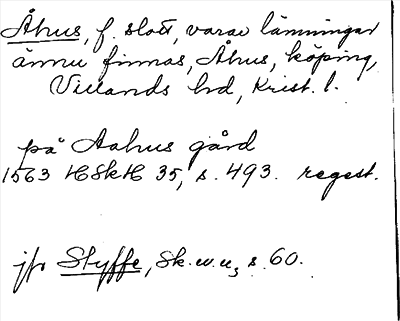 Åhus, f. slott, varav lämningar
ännu finnas, Åhus, köping,
Villands hd, Krist. l.
på Aahus gård
1563 HSkH 35, s. 493. regest.
jfr Styffe, Sk.u.u, s. 60.